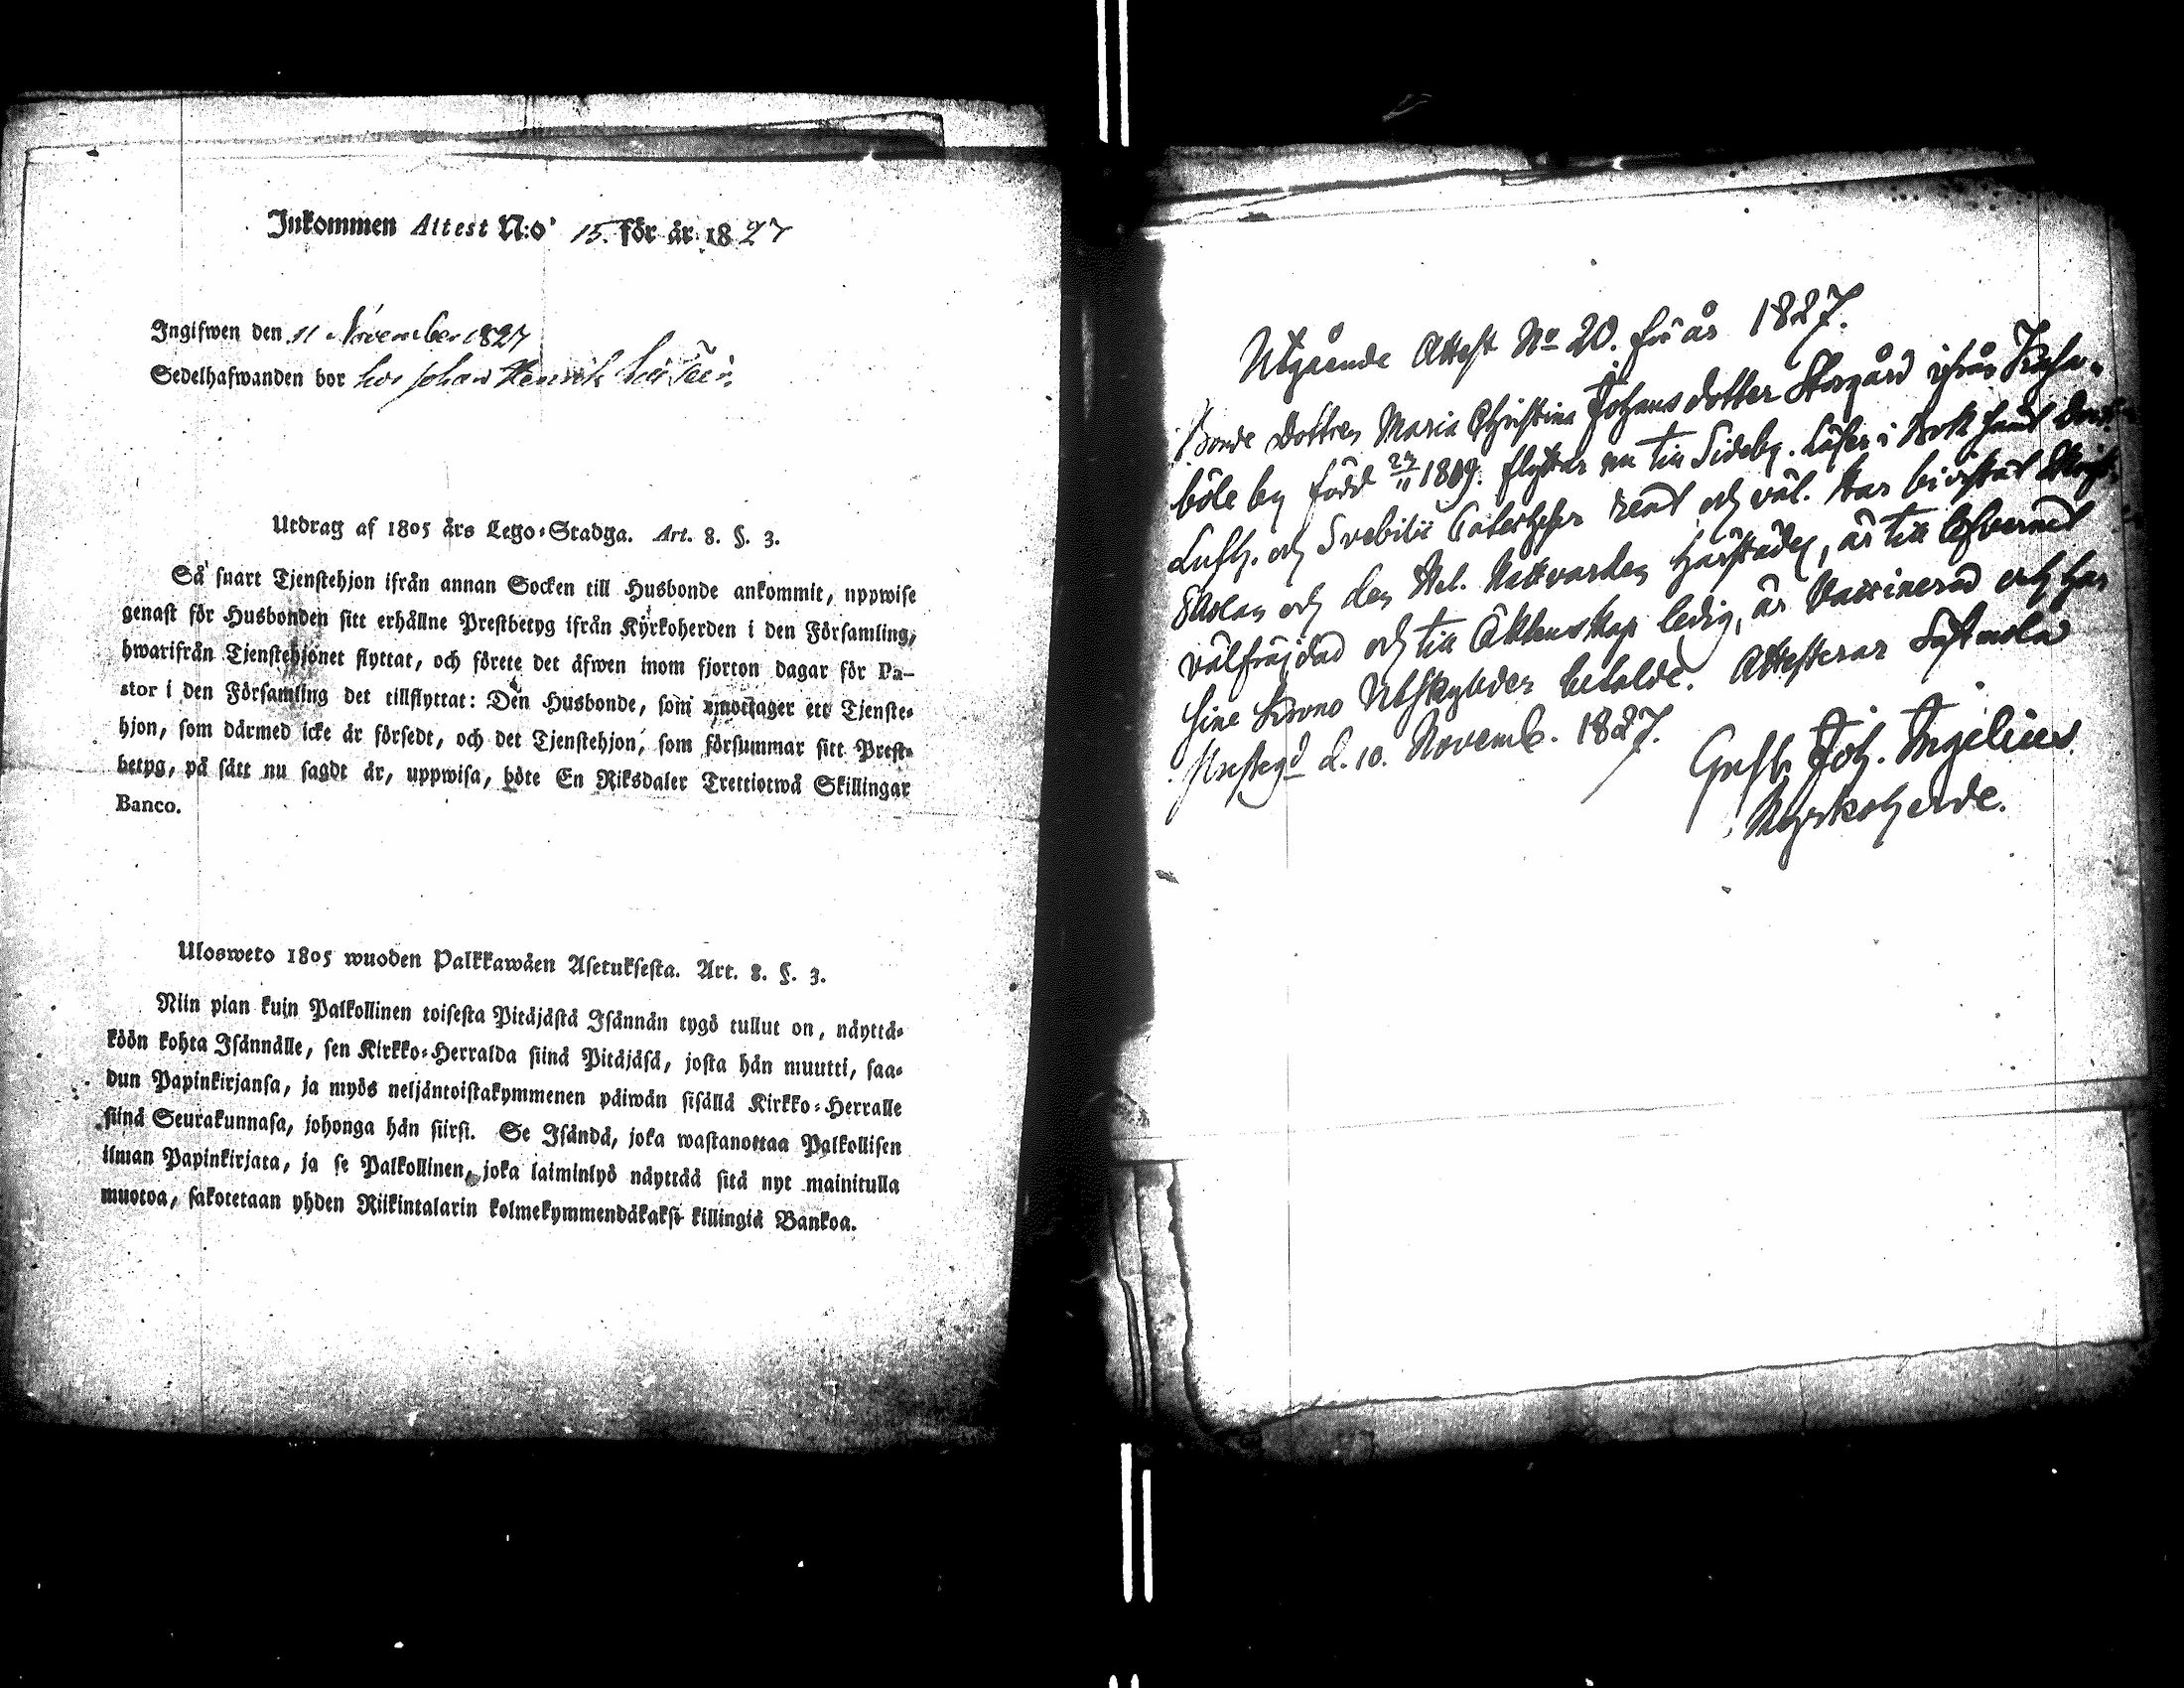 Inkommen Attest N:o 15. för år 1827
Ingifwen den 11 November 1827
Sedelhafwanden bor hos Johan Henrik
Utdrag af 1805 års Lego-Stadga. Art. 8. §. 3.
Så snart Tjenstehjon ifrån annan Socken till Husbonde ankommit, uppwise
genast för Husbonden sitt erhållne Prestbetyg ifrån Kyrkoherden i den Församling,
hwarifrån Tjenstehjonet flyttat, och förete det äfwen inom fjorton dagar för Pa-
stor i den Församling det tillflyttat: Den Husbonde, som emottager ett Tjenste-
hjon, som därmed icke är försedt, och det Tjenstehjon, som försummar sitt Prest-
betyg, på sätt nu sagdt är, uppwisa, böte En Riksdaler Trettiotwå Skillingar
Banco.
Ulosweto 1805 wuoden Palkkawäen Asetuksesta. Art. 8. §. 3.
Niin pian kuin Palkollinen toisesta Pitäjästä Isännän tygö tullut on, näyttä-
köön kohta Isännälle, sen Kirkko-Herralda siinä Pitäjäsä, josta hän muutti, saa-
dun Papinkirjansa, ja myös neljäntoistakymmenen päiwän sisällä Kirkko-Herralle
siinä Seurakunnasa, johonga hän siirsi. Se Isändä, joka wastanottaa Palkollisen
ilman Papinkirjata, ja se Palkollinen, joka laiminlyö näyttää sitä nyt mainitulla
muotoa, sakotetaan yhden Riikintalarin kolmekymmendäkaksi killingiä Bankoa.
Utgående Attest No 20. för år 1827.
Bonde Dottren Maria Christina Johansdotter Storgård ifrån
böle by född 24/11 1809. flyttar nu till Sideby. Läser i Bok samt
Luth. och Svebilii Catecheser rent och väl. Har bivistat
Skolan och den Hel. Nattvarden härstädes, är till Lefvernet
välfräjdad och till Äktenskap ledig, är Vaccinerad och har
sine Krono Utskylder betalde. Attesterar
Prestegd d. 10. Novemb. 1827.
Gust. Joh. Ingelius
Kyrkoherde.